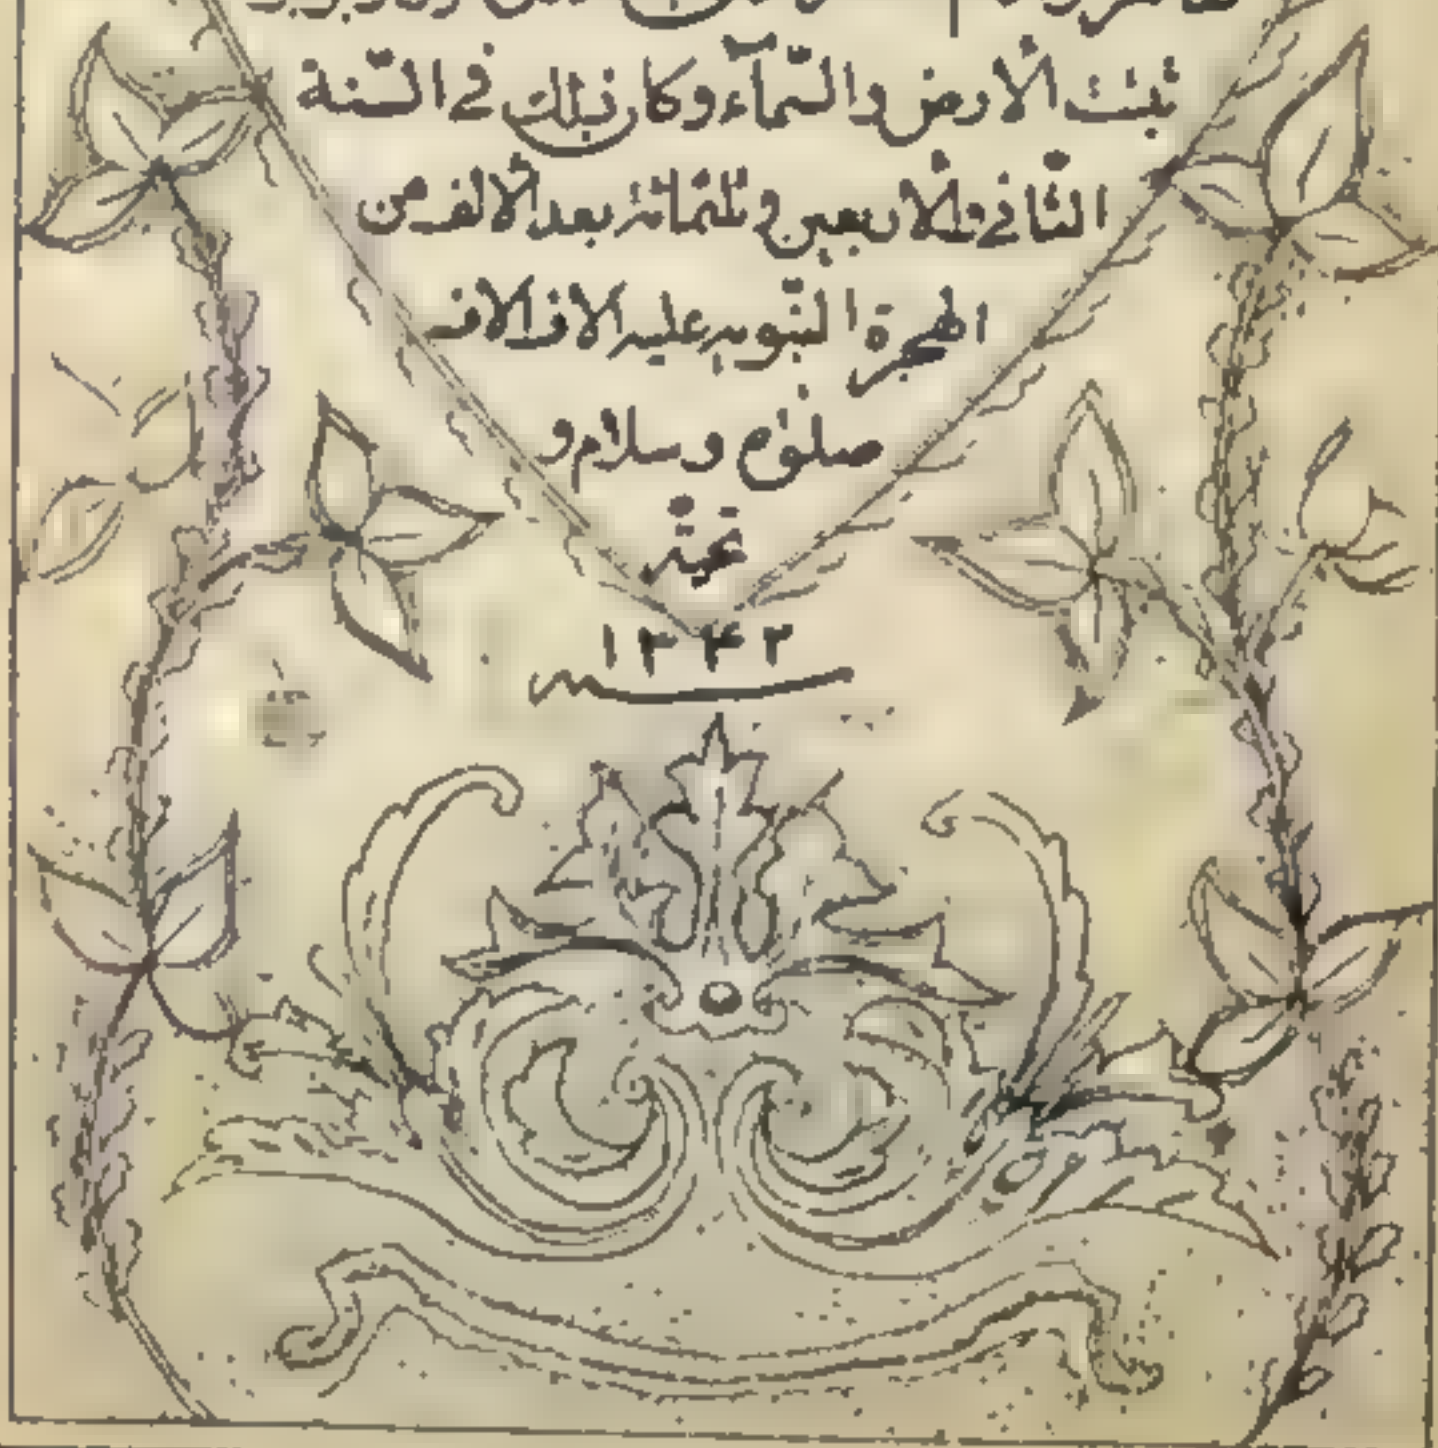 ثبتت الأرض والسّمآء وكان ذلك في السّنة
الثّاني والأربعين وثلثمائة بعد الألف من
الهجرة النّبويه عليه الاف الاف
صلوة وسلام و
تحيّه
۱۳۴۲